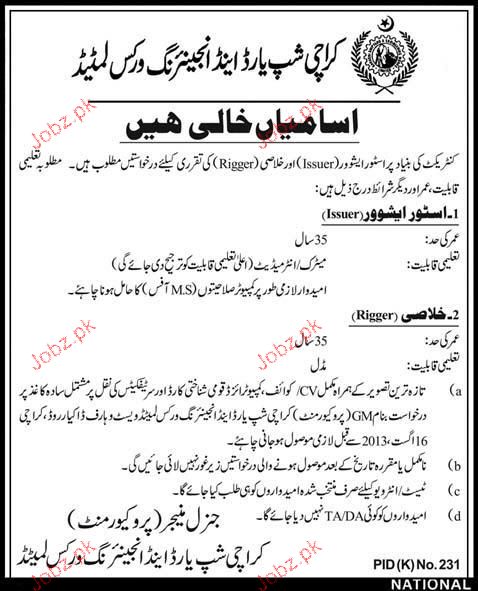 کراچی شپ یارڈ اینڈ انجینئرنگ ورکس لمیٹڈ
اسامیاں خالی ہیں
کنٹریکٹ کی بنیاد پر اسٹور ایشوور (Issuer) اور خلاصی (Rigger) کی تقرری کیلئے درخواستیں مطلوب ہیں۔ مطلوبہ تعلیمی
قابلیت، عمر اور دیگر شرائط درج ذیل ہیں:
1۔ اسٹور ایشوور (Issuer)
عمر کی حد: 35 سال
تعلیمی قابلیت: میٹرک/انٹرمیڈیٹ (اعلیٰ تعلیمی قابلیت کو ترجیح دی جائے گی)
امیدوار لازمی طور پر کمپیوٹر صلاحیتوں (M.S آفس) کا حامل ہونا چاہئے۔
2۔ خلاصی (Rigger)
عمر کی حد: 35 سال
تعلیمی قابلیت: مڈل
(a تازہ ترین تصویر کے ہمراہ مکمل CV/کوائف، کمپیوٹرائزڈ قومی شناختی کارڈ اور سرٹیفکیٹس کی نقل پر مشتمل سادہ کاغذ پر
درخواست بنام GM (پروکیورمنٹ) کراچی شپ یارڈ اینڈ انجینئرنگ ورکس لمیٹڈ ویسٹ وہارف ڈاکیارڈ روڈ، کراچی
16 اگست، 2013 سے قبل لازمی موصول ہو جانی چاہئے۔
(b نامکمل یا مقررہ تاریخ کے بعد موصول ہونے والی درخواستیں زیر غور نہیں لائی جائیں گی۔
(c ٹیسٹ/انٹرویو کیلئے صرف منتخب شدہ امیدواروں کو ہی طلب کیا جائے گا۔
(d امیدواروں کو کوئی TA/DA نہیں دیا جائے گا۔
جنرل منیجر (پروکیورمنٹ)
کراچی شپ یارڈ اینڈ انجینئرنگ ورکس لمیٹڈ
PID (K) No. 231
NATIONAL
Jobz.pk
Jobz.pk
Jobz.pk
Jobz.pk
Jobz.pk
Jobz.pk